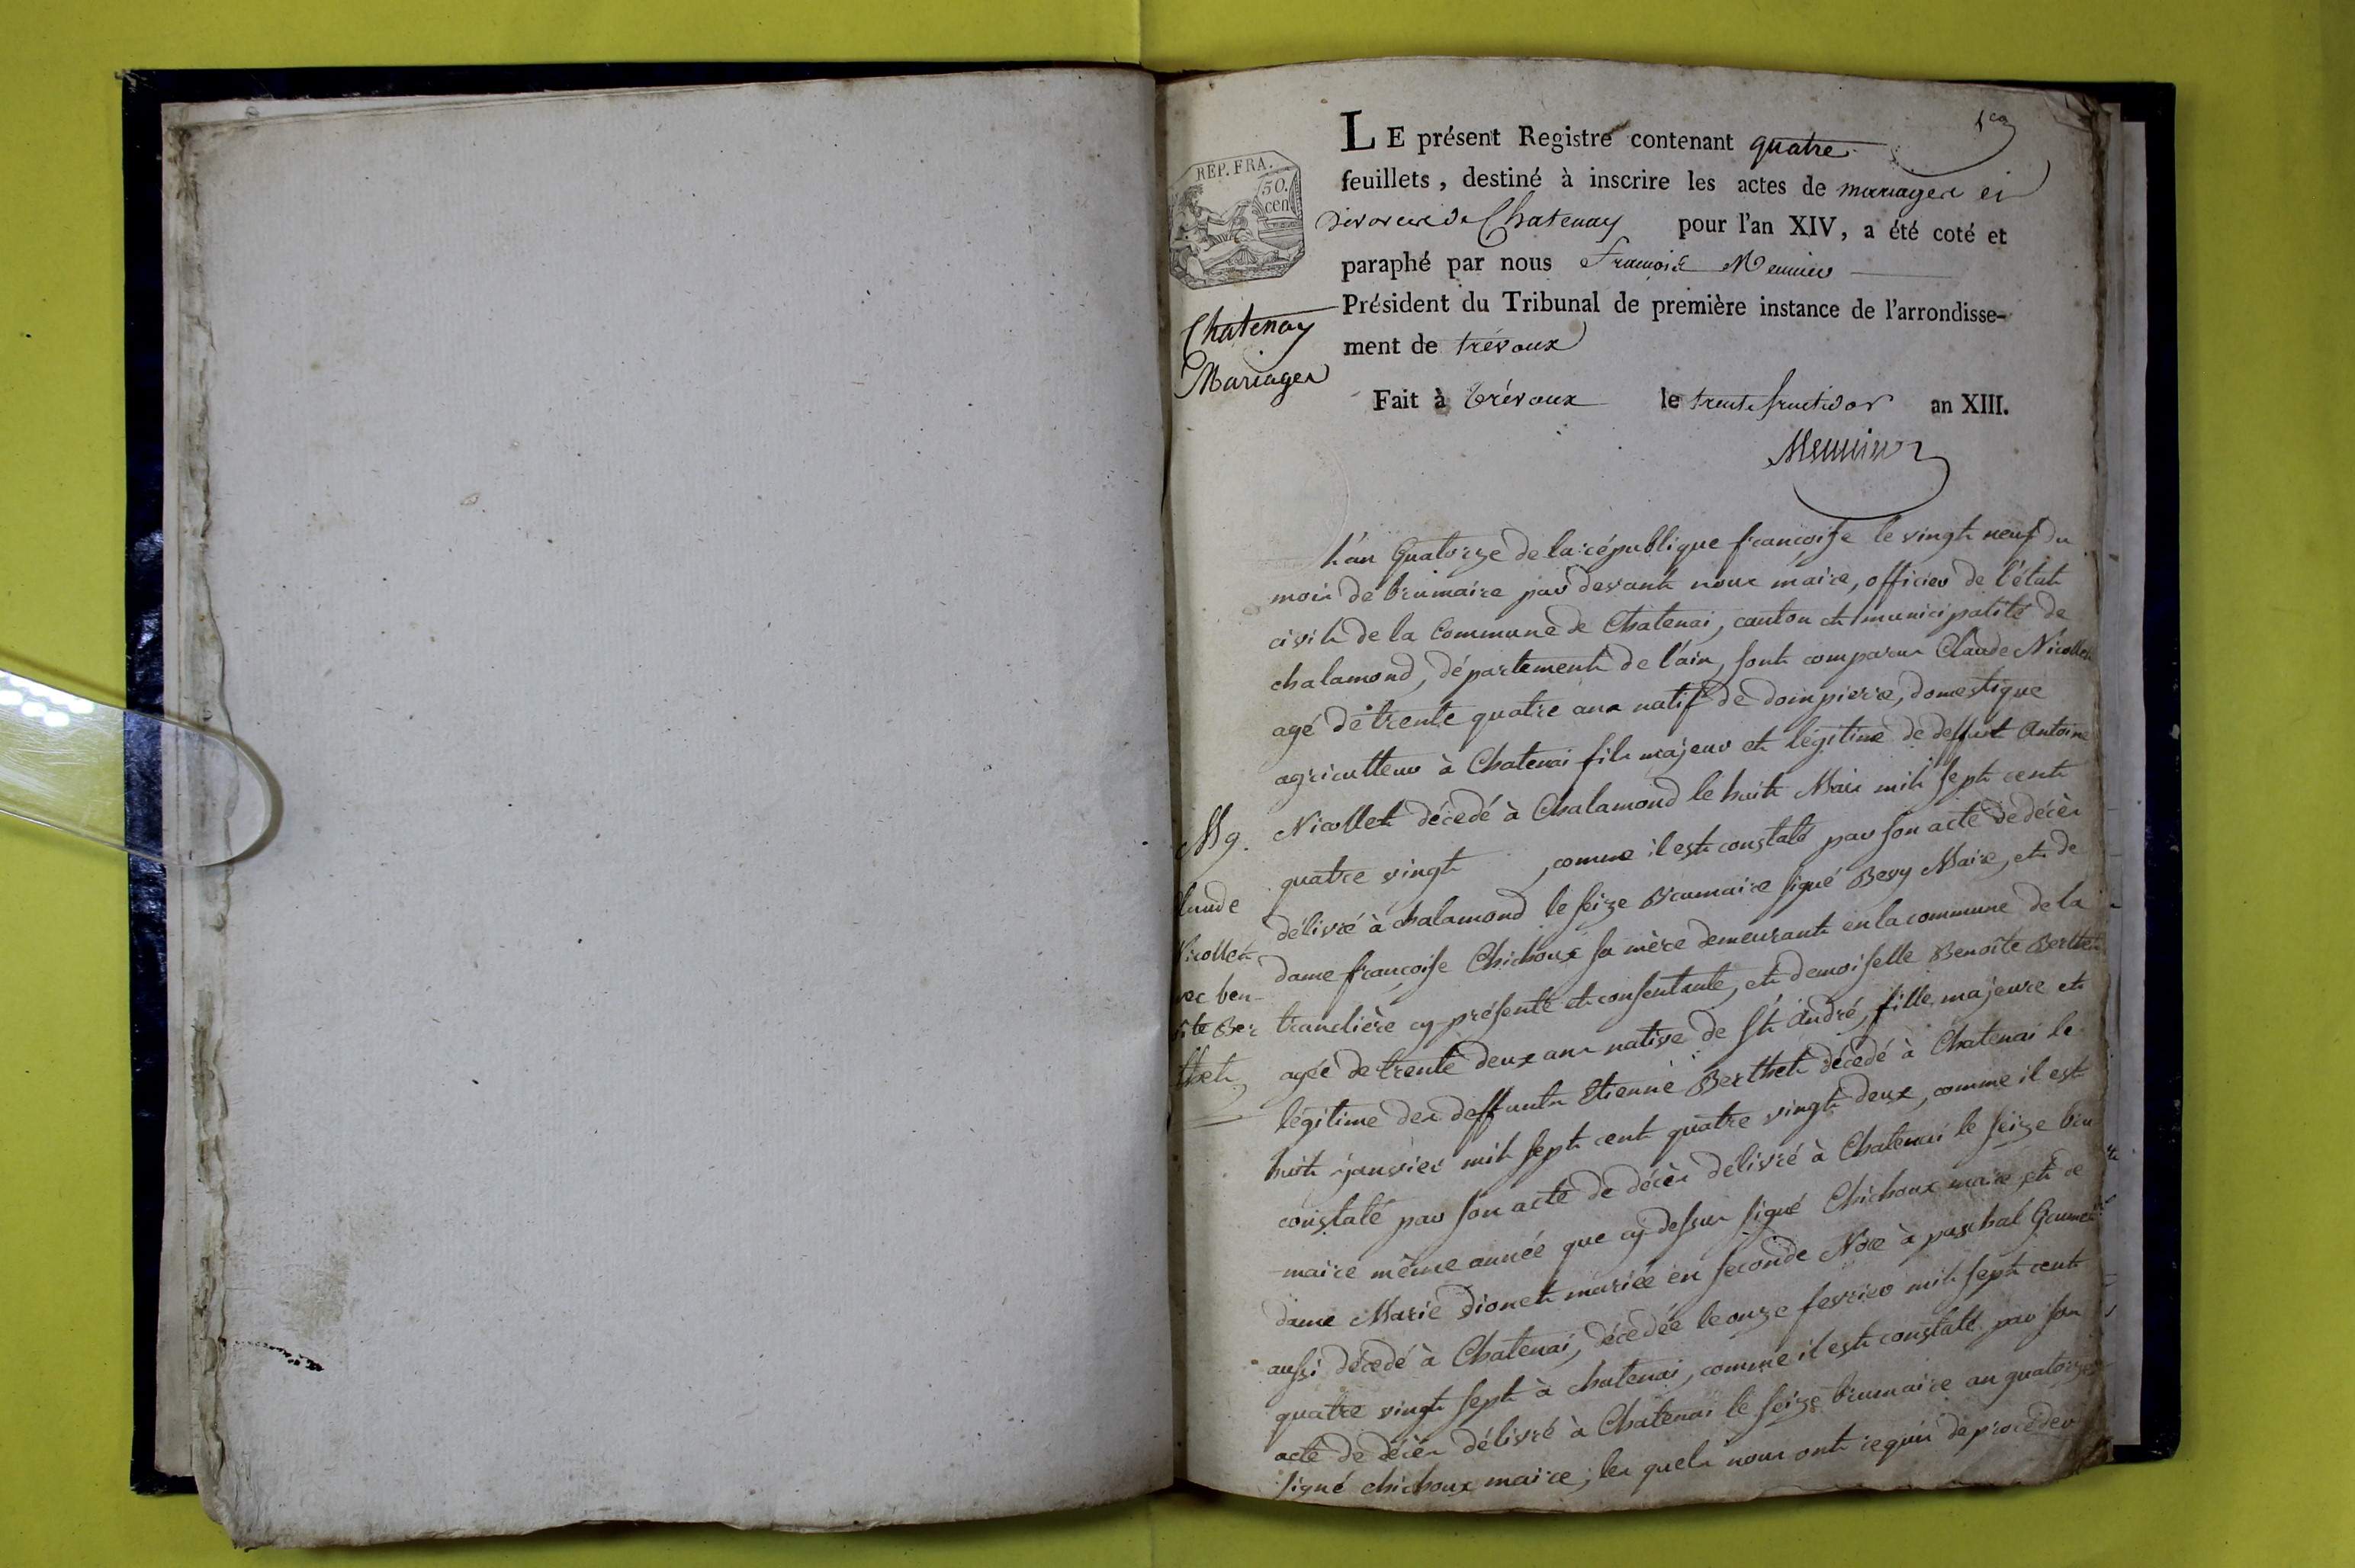 1er
LE présent Registre contenant quatre
feuillets, destiné à inscrire les actes de mariages et
divorces de Chatenay pour l'an XIV, a été coté et
paraphé par nous François Meunier
Président du Tribunal de première instance de l'arrondisse-
ment de trévoux
Fait à Trévoux le trente fructidor an XIII.
Meunier
REP. FRA.
50.
cen
Chatenay
Mariages
L'an Quatorze de la république françoise le vingt neuf du
mois de brumaire par devant nous maire, officier de l'état
civil de la Commune de Chatenai, canton et municipalité de
chalamond, département de l'ain, sont comparus Claude Nicollet
agé de trente quatre ans natif de dompierre, domestique
agriculteur à Chatenai fils majeur et légitime de deffunt Antoine
Nicollet décedé à Chalamond le huit Mars mil sept cent
quatre vingt , comme il est constaté par son acte de décès
délivré à chalamond le seize Brumaire signé Bevy Maire, et de
dame françoise Chichoux sa mère demeurante en la commune de la
tranclière cy-présente et consentante, et demoiselle Benoîte Berthet
agée de trente deux ans native de St André, fille majeure et
légitime des deffunts Etienne Berthet décedé à Chatenai le
huit janvier mil sept cent quatre vingt deux, comme il est
constaté par son acte de décès délivré à Chatenai le seize bru
maire même année que cy dessus signé Chichoux maire, et de
dame Marie Dionet mariée en seconde Noce à paschal
aussi décedé à Chatenai, décedée le onze fevrier mil sept cent
quatre vingt sept à chatenai, comme il est constaté par son
acte de décès délivré à Chatenai le seize brumaire an quatorze
signé chichoux maire; les quels nous ont requis de procéder
Mg.
laude
Nicollet
vec ben-
oîte Ber
thet